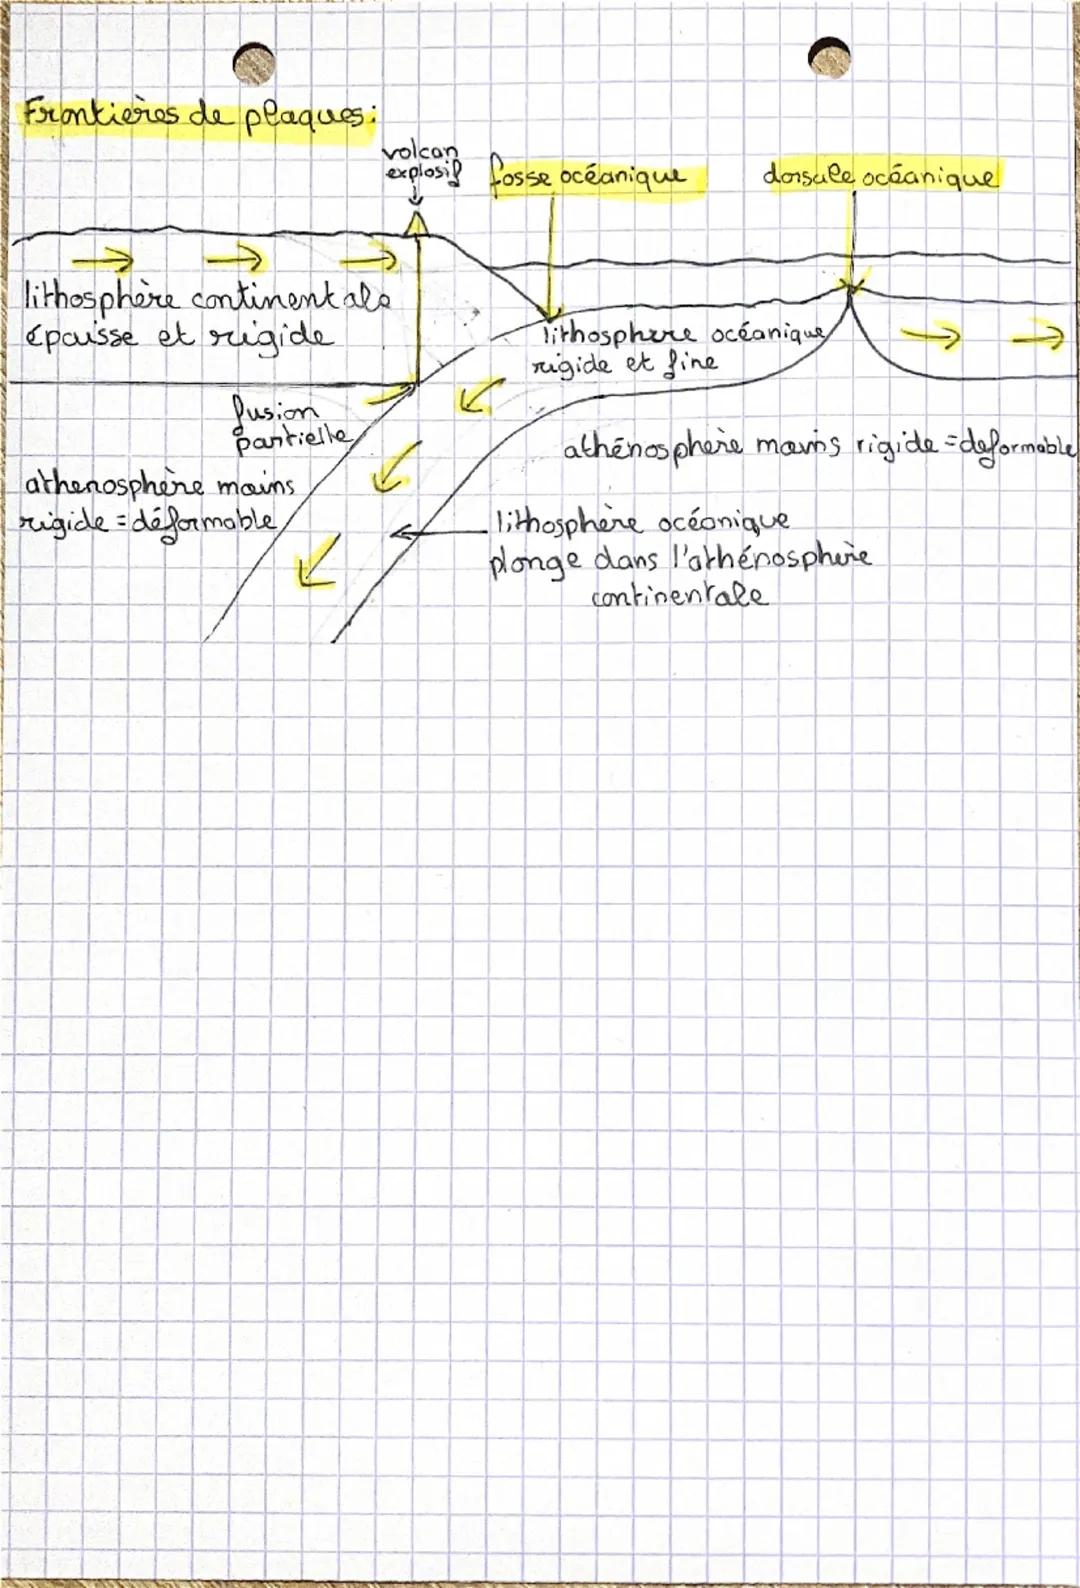 Frontières de plaques:
volcan
explosif
fosse océanique
dorsale océanique
lithosphère continentale
épaisse et rigide
lithosphere océanique
rigide et fine
fusion
partielle
athénosphère moins rigide = deformable
athenosphère moins
rigide = déformable
lithosphère océanique
plonge dans l'athénosphère
continentale